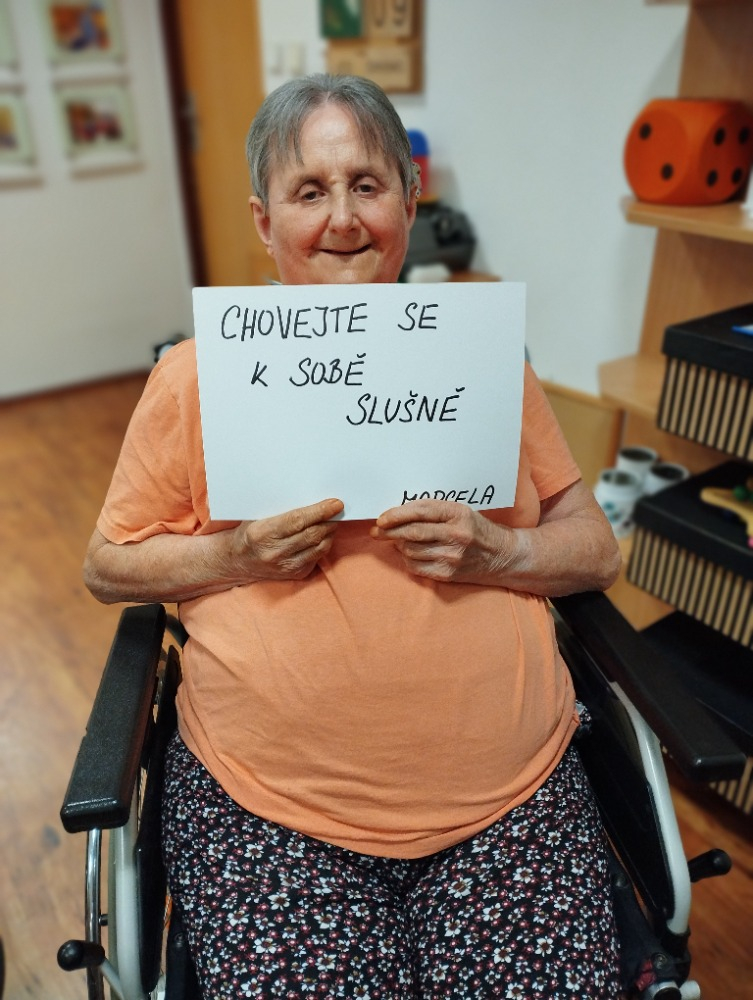 CHOVEJTE SE
K SOBĚ
SLUŠNĚ
MARCELA